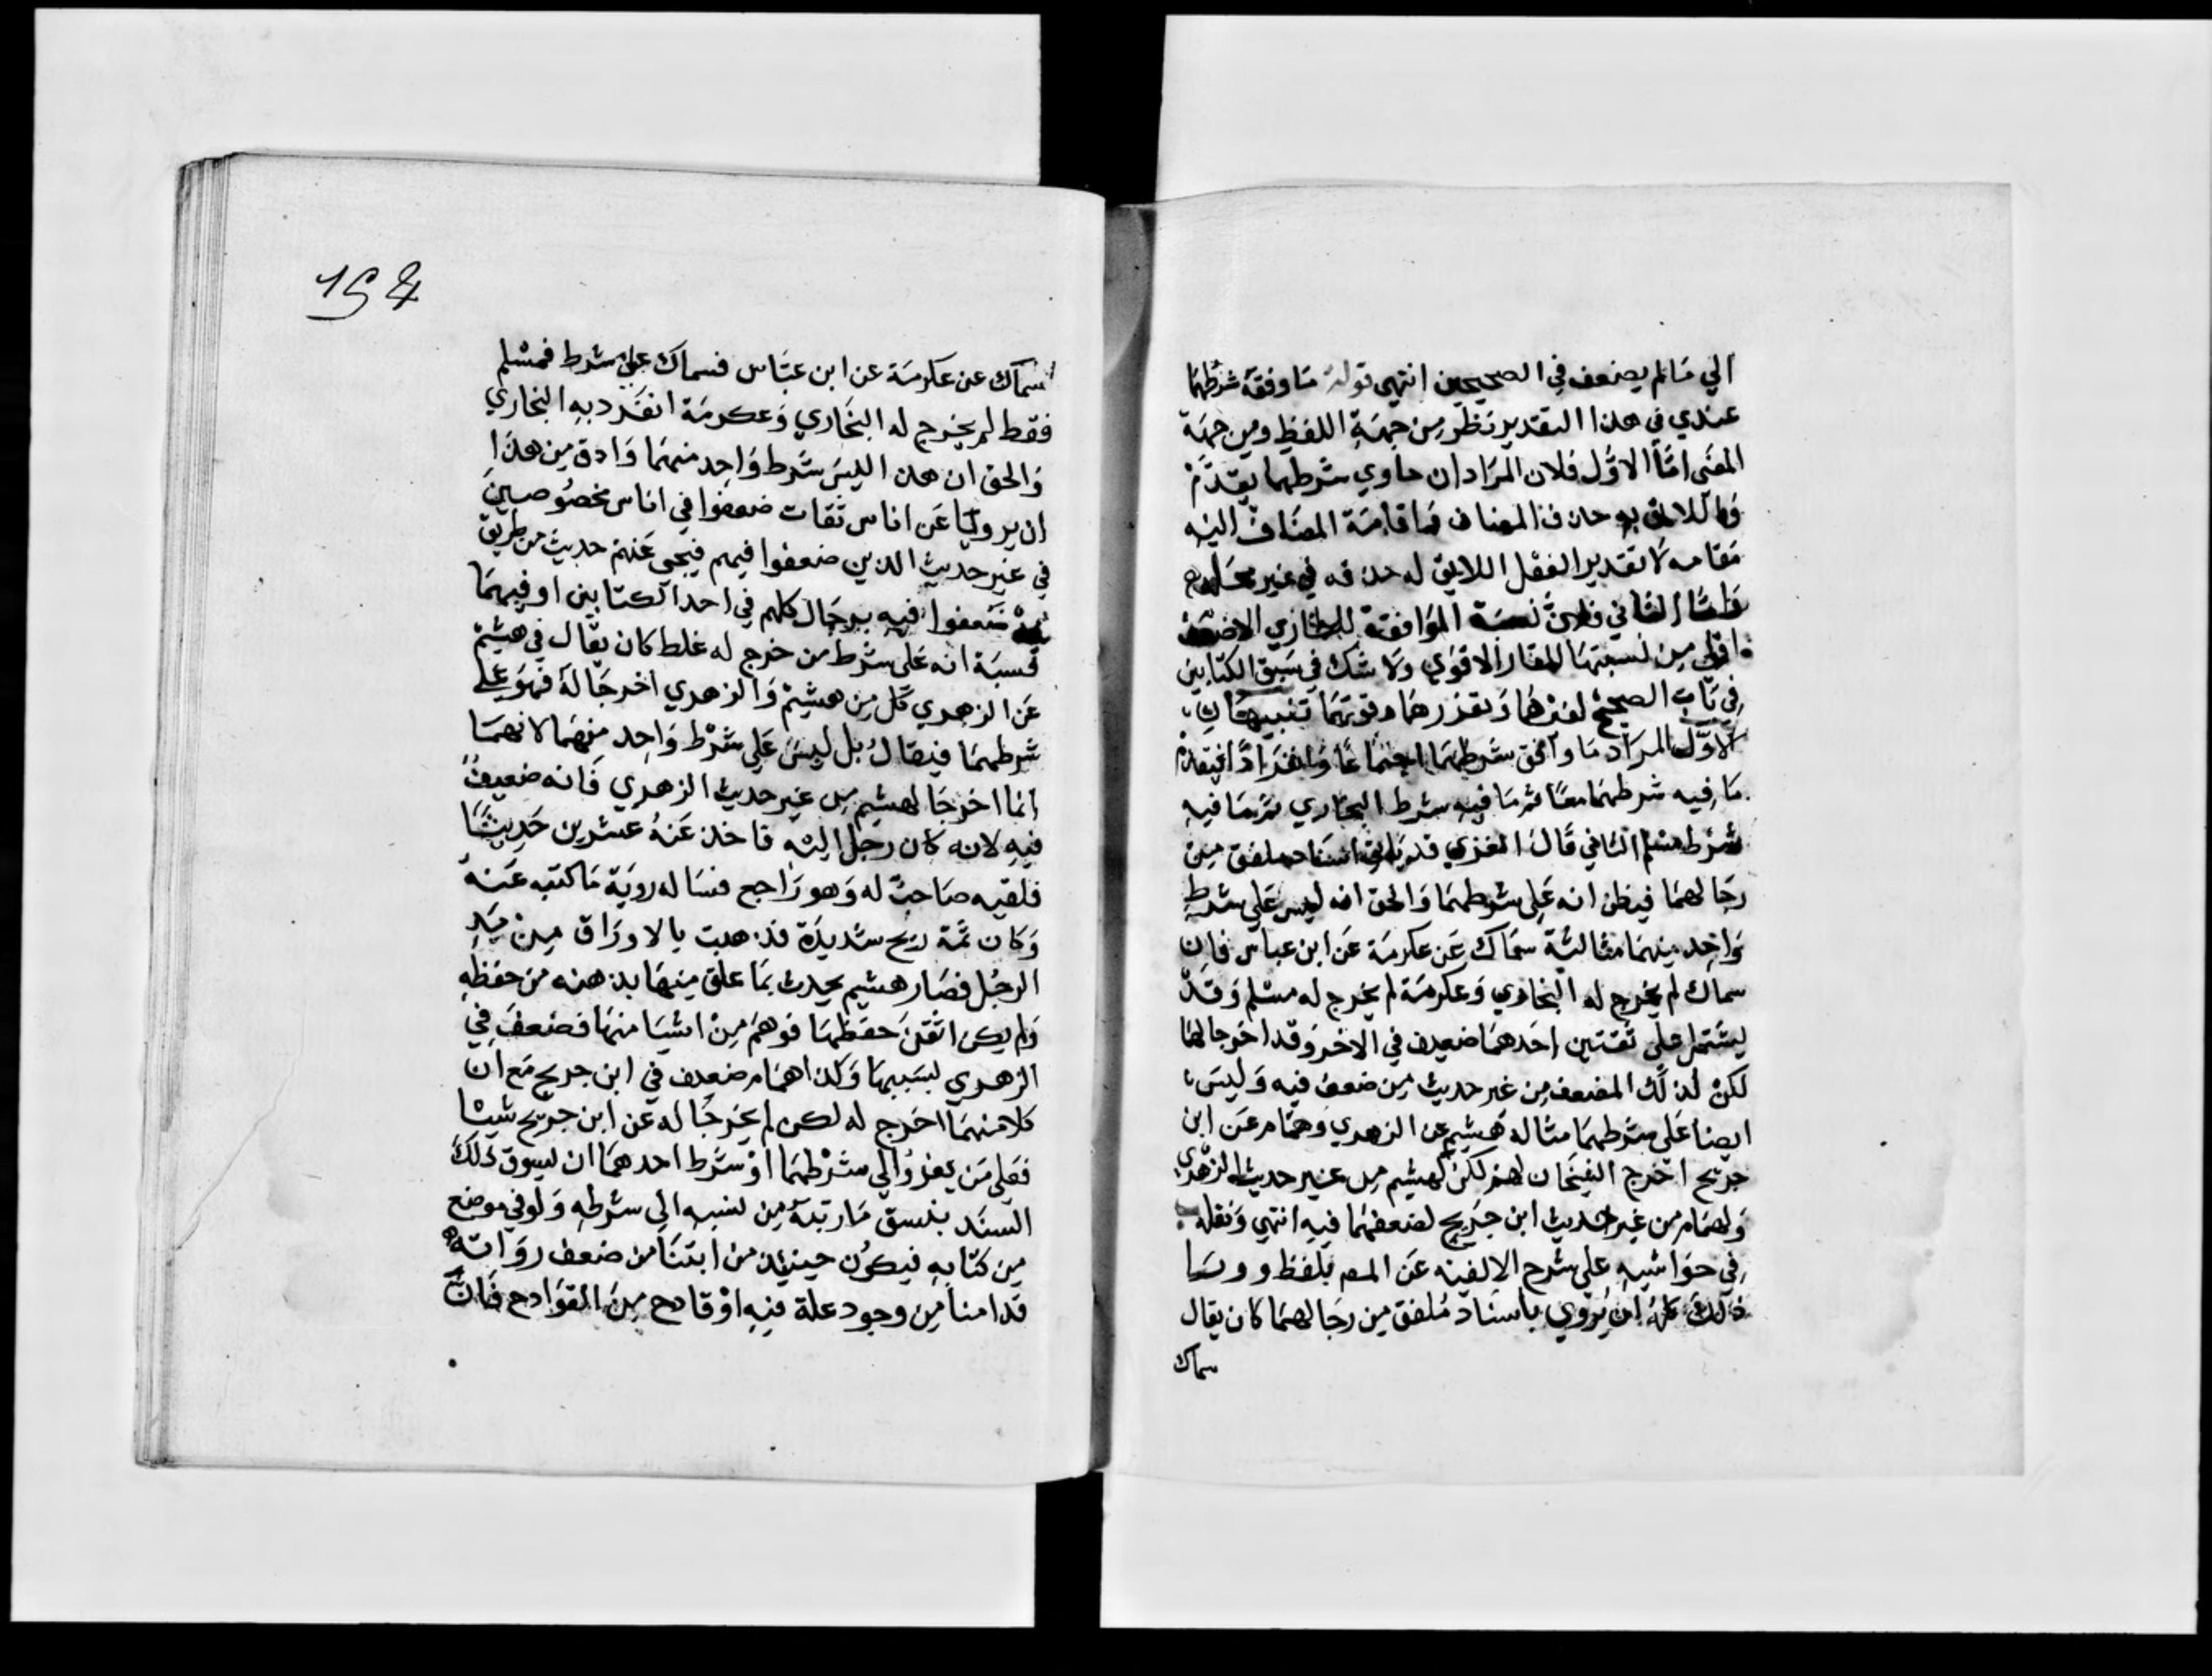 الي مالم يضعف في الصحيحين انتهى قوله ما وفقه شرطهما
عندي في هذا التقدير نظر من جهة اللفظ ومن جهة
المعنى اما الاول فلان المراد ان حاوي شرطهما يقدم
اللائق به حذف المضاف اقامة المضاف اليه
مقامه لا تقدير الفعل اللايق له حذفه في غير محله
واما الثاني فلان نسبة الموافقة
من نسبتها الاقوى ولا شك في سبق الكتابين
في باب الصحيح لغيرهما وتقررهما وقوتهما تنبيهان
الاول المراد ما وافق شرطهما اجتماعا وانفرادا فيقدم
ما فيه شرطهما معا ثم ما فيه شرط البخاري ثم ما فيه
شرط مسلم الثاني قال الغزي قد اسناد ملفق من
رجالهما فيظن انه على شرطهما والحق انه ليس على شرط
واحد منهما مثاله سماك عن عكرمة عن ابن عباس فان
سماك لم يخرج له البخاري وعكرمة لم يخرج له مسلم وقد
يشتمل على ثقتين احدهما ضعيف في الاخر وقد اخرجا لهما
لكن لذلك المضعف من غير حديث من ضعف فيه وليس
ايضا على شرطهما مثاله هشيم عن الزهري وهمام عن ابن
جريح اخرج الشيخان لهم لكن لهشيم من غير حديث الزهري
ولهمام من غير حديث ابن جريح لضعفهما فيه انتهي ونقله
في حواشيه على شرح الالفيه عن المص بلفظ وورا
ذلك كله ان يروي باسناد ملفق من رجالهما كان يقال
سماك
154
سماك عن عكرمة عن ابن عباس فسماك على شرط فمسلم
فقط لم يخرج له البخاري وعكرمة انفرد به البخاري
والحق ان هذا ليس شرط واحد منهما وادق من هذا
ان يرويا عن اناس ثقات ضعفوا في اناس مخصوصين
في غير حديث الذين ضعفوا فيهم فيجي عنهم حديث من طريق
من ضعفوا فيه برجال كلهم في احد الكتابين او فيهما
فنسبة انه على شرط من خرج له غلط كان يقال في هشيم
عن الزهري كل من هشيم والزهري اخرجا له فهو على
شرطهما فيقال بل ليس على شرط واحد منهما لانهما
انما اخرجا لهشيم من غير حديث الزهري فانه ضعيف
فيه لانه كان رحل اليه فاخذ عنه عشرين حديثا
فلقيه صاحب له وهو راجع فساله روية ما كتبه عنه
وكان ثمة ريح شديدة فذهبت بالاوراق من يد
الرجل فصار هشيم يحدث بما علق منها بذهنه من حفظه
ولم يكن اتقن حفظها فوهم من اشيا منها فضعف في
الزهري بسببها وكذا همام ضعيف في ابن جريح مع ان
كلا منهما اخرج له لكن لم يخرجا له عن ابن جريح شيئا
فعلى من يعزو الي شرطهما او شرط احدهما ان يسوق ذلك
السند بنسق مارتبه من نسبه الى شرطه ولو في موضع
من كتابه فيكون حينئذ من ابتنا من ضعف رواته
قد امنا من وجود علة فيه او قادح من القوادح فان